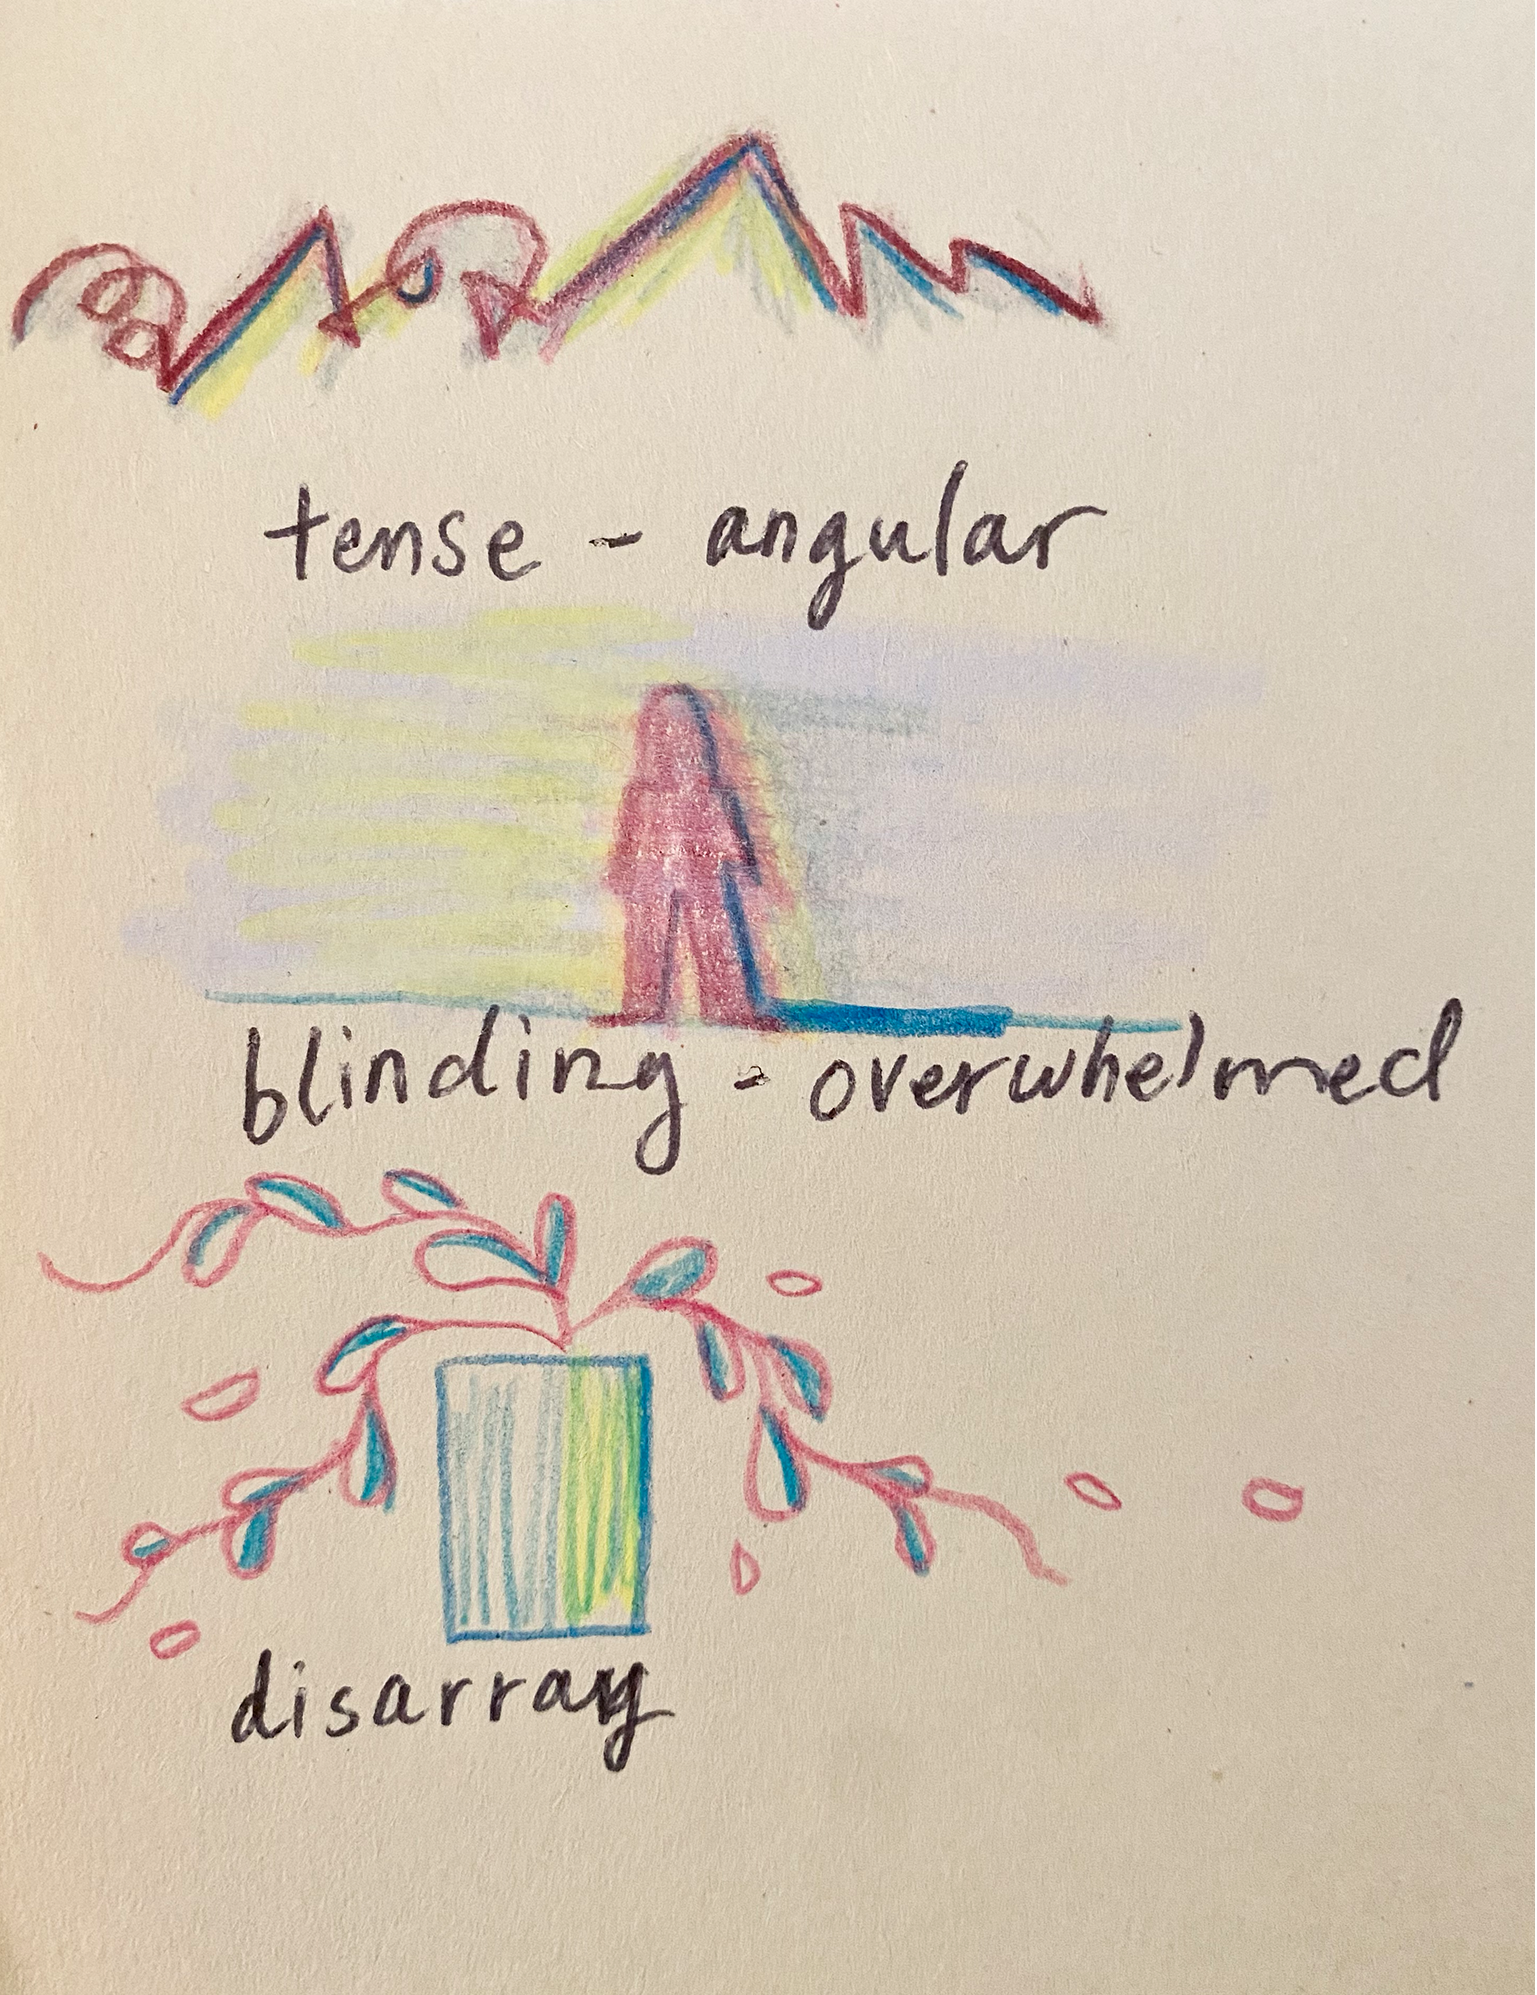 tense - angular
blinding - overwhelmed
disarray